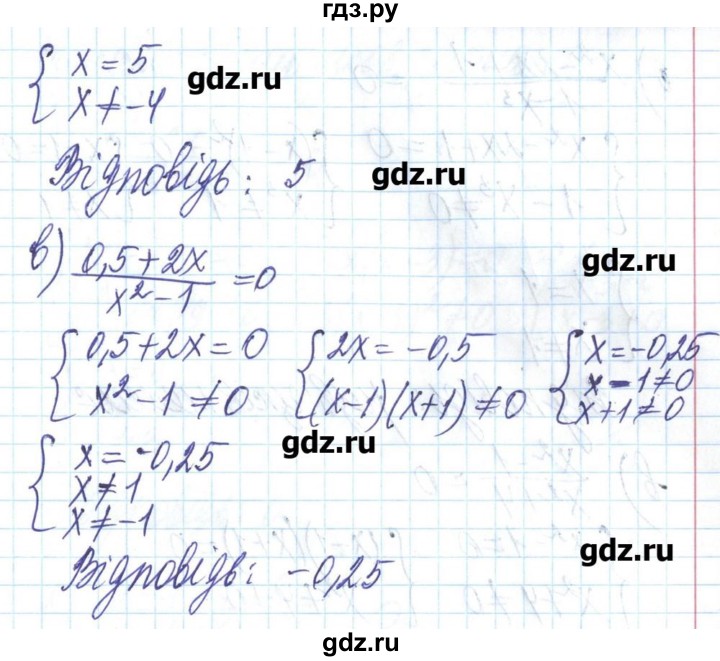 гдз.ру
{ x = 5
x ≠ -4
gdz.ru
Відповідь: 5
gdz.ru
в) (0,5+2x)/(x²-1) = 0
gdz.ru
{ 0,5+2x = 0 { 2x = -0,5 { x = -0,25
x²-1 ≠ 0 (x-1)(x+1) ≠ 0 x-1 ≠ 0
x+1 ≠ 0
gdz.ru
{ x = -0,25
x ≠ 1
x ≠ -1
gdz.ru
Відповідь: -0,25
gdz.ru